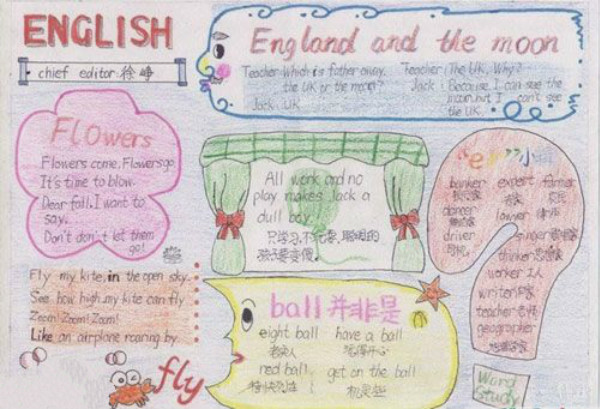 ENGLISH
chief editor:徐峥
England and the moon
Teacher:Which is father away,
the UK or the moon?
Jack: UK
Teacher: The UK, Why?
Jack: Because I can see the
moon,but I can't see
the UK.
Flowers
Flowers come, Flowers go.
It's time to blow.
Dear fall, I want to
say.
Don't don't let them
go!
All work and no
play makes Jack a
dull boy.
只学习,不玩耍,聪明的
孩子要变傻。
"er"小
banker
dancer
driver
司机
expert
farmer
农民
singer
thinker
worker 工人
writer 作家
teacher 老师
geographer
Fly my kite in the open sky.
See how high my kite can fly
Zoom! Zoom! Zoom!
Like an airplane roaring by.
fly
ball 并非是
eight ball
老实人
have a ball
玩得开心
red ball
特快列车
get on the ball
机灵些
Word
Study